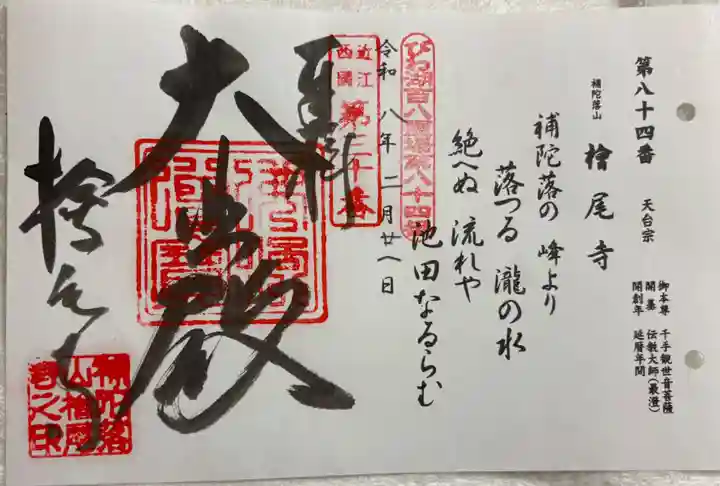 第八十四番 天台宗
補陀落山 檜尾寺
御本尊 千手観世音菩薩
開基 伝教大師(最澄)
開創年 延暦年間
補陀落の 峰より
落つる 瀧の水
絶へぬ 流れや
池田なるらむ
びわ湖百八霊場第八十四番
令和 八年 二月 廿八日
近江
西國
第二十番
奉拝
大悲殿
檜尾寺
補陀落
山檜尾
寺之印